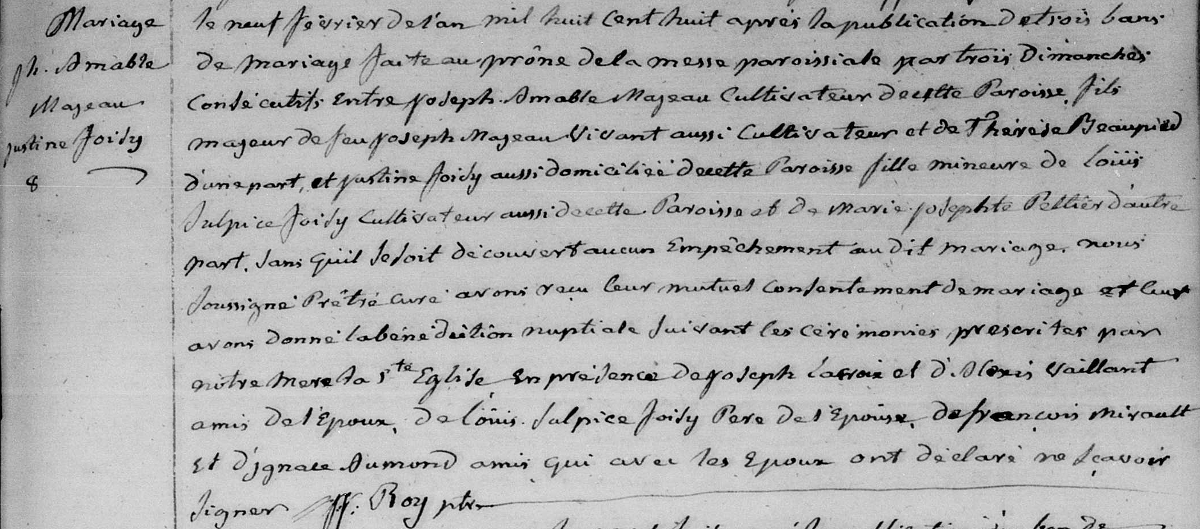 Mariage
Jh. Amable
Mageau
Justine Joisy
8
le neuf février de l'an mil huit cent huit après la publication de trois bans
de mariage faite au prône de la messe paroissiale par trois Dimanches
Consécutifs Entre Joseph Amable Mageau Cultivateur de cette Paroisse, fils
majeur de feu Joseph Mageau Vivant aussi Cultivateur et de Thérèse Beaupied
d'une part, et Justine Joisy aussi domiciliée de cette Paroisse fille mineure de Loüis
Sulpice Joisy Cultivateur aussi de cette Paroisse et de Marie Josephte Peltier d'autre
part. Sans qu'il se soit découvert aucun Empêchement au dit mariage. nous
Soussigné Prêtre Curé avons reçu leur mutuel Consentement de mariage et leur
avons donné la bénédiction nuptiale suivant les cérémonies prescrites par
nôtre Mere la Ste Eglise En présence de Joseph Lacroix et d'Alexis Vaillant
amis de l'Epoux, de Loüis Sulpice Joisy Pere de l'Epouse, de françois Mirault
Et d'Ignace Aumond amis qui avec les Epoux ont déclaré ne sçavoir
signer Roy ptre